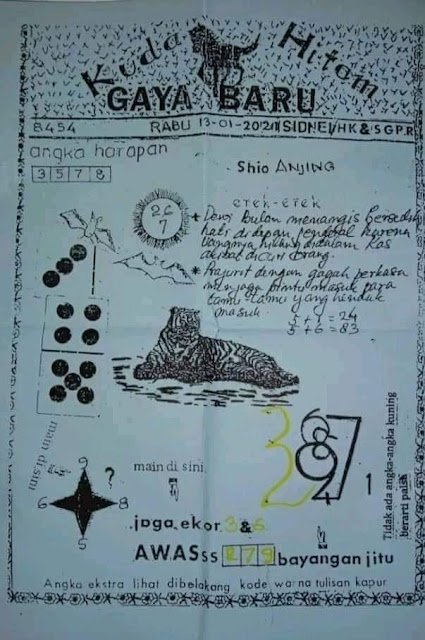 Kuda Hitam
GAYA BARU
8454 RABU 13-01-2021 SIDNEI/HK & SGPR
angka harapan
3 5 7 8
Shio ANJING
26
7
erek-erek
* Dewi Bulan menangis bersedih
hati didepan karena
uangnya hilang didalam kas
akibat dicuri orang.
* Prajurit dengan gagah perkasa
menjaga pintu masuk para
tamu tamu yang hendak
masuk
5 + 7 = 24
5 + 6 = 83
main di sini
9
?
6 8
9
main di sini
3 6 8 9 7
4 1
Tidak ada angka-angka kuning
berarti palsu
jaga ekor 3 & 6
AWASss 279 bayangan jitu
Angka ekstra lihat dibelakang kode warna tulisan kapur